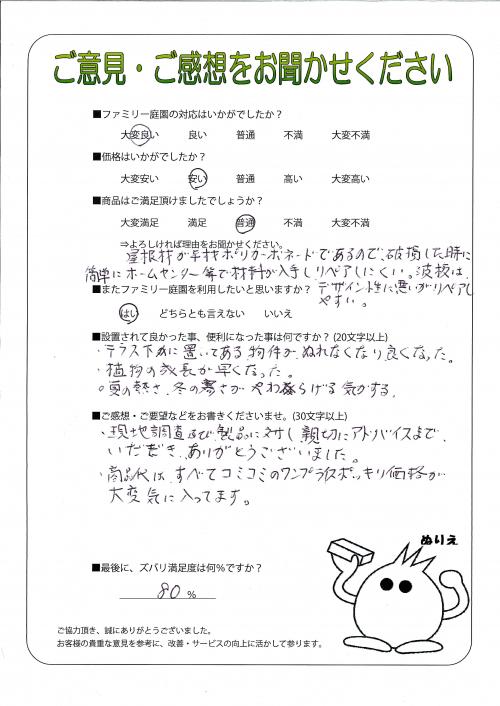 ご意見・ご感想をお聞かせください
■ファミリー庭園の対応はいかがでしたか？
大変良い 良い 普通 不満 大変不満
■価格はいかがでしたか？
大変安い 安い 普通 高い 大変高い
■商品はご満足頂けましたでしょうか？
大変満足 満足 普通 不満 大変不満
⇒よろしければ理由をお聞かせください。
屋根材が平板ポリカーボネードであるので、破損した時に
簡単にホームセンター等で材料が入手しリペアしにくい。波板は、
デザイン性に悪いがリペアし
やすい。
■またファミリー庭園を利用したいと思いますか？
はい どちらとも言えない いいえ
■設置されて良かった事、便利になった事は何ですか？(20文字以上)
・テラス下に置いてある物件が、ぬれなくなり良くなった。
・植物の成長が早くなった。
・夏の熱さ、冬の寒さがやわらげる気がする。
■ご感想・ご要望などをお書きくださいませ。(30文字以上)
・現地調査及び製品に対し、親切にアドバイスまで
いただき、ありがとうございました。
・商品代は、すべてコミコミのワンプライスポッキリ価格が
大変気に入ってます。
■最後に、ズバリ満足度は何%ですか？
80 %
ぬりえ
ご協力頂き、誠にありがとうございました。
お客様の貴重な意見を参考に、改善・サービスの向上に活かして参ります。